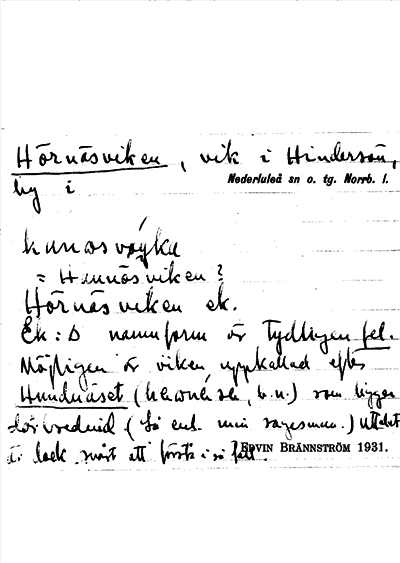 Hörnäsviken, vik i Hindersön,
by i Nederluleå sn o. tg. Norrb. l.
= Hunnäsviken?
Hörnäsviken ek.
Ek:s namnform är tydligen fel.
Möjligen är viken uppkallad efter
Hundnäset (b.n.) som ligger
därbredvid (så enl. min sagesman.) Uttalet
är dock svårt att förstå i så fall.
ERVIN BRÄNNSTRÖM 1931.